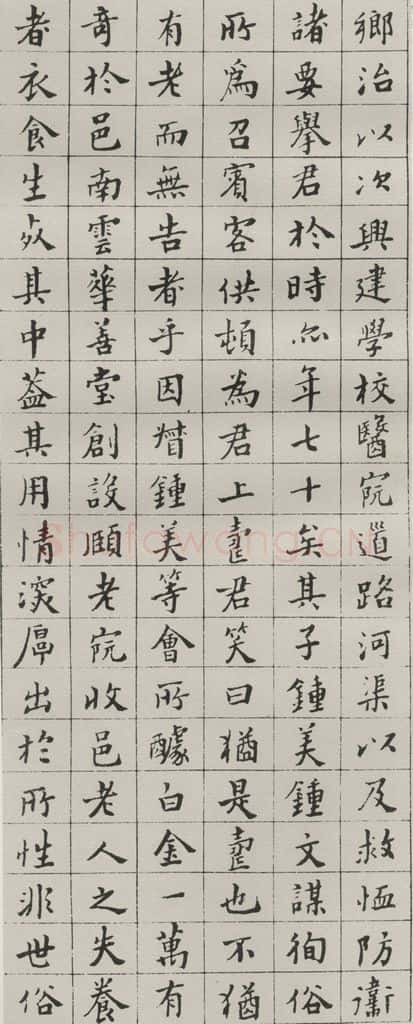 鄉治以次興建學校醫院道路河渠以及救恤防衛
諸要舉君於時亦年七十矣其子鍾美鍾文謀徇俗
所爲召賓客供頓為君上壽君笑曰猶是壽也不猶
有老而無告者乎因督鍾美等會所醵白金一萬有
奇於邑南雲華善堂創設頤老院收邑老人之失養
者衣食生死其中葢其用情深厚出於所性非世俗
Shufawang.CN